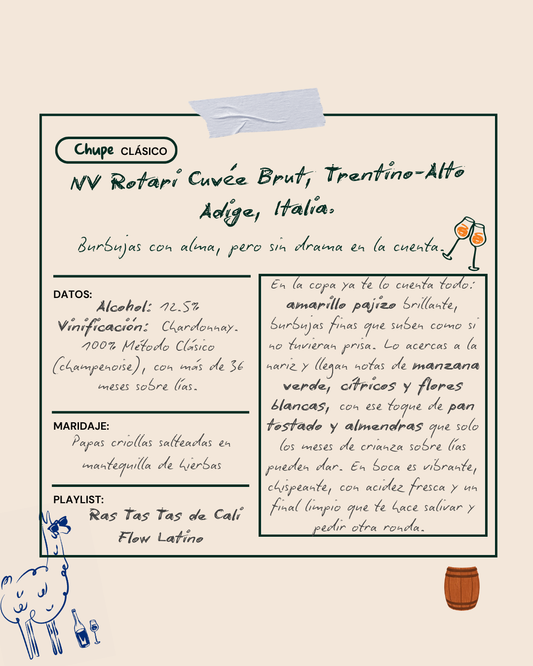 Chupe CLÁSICO
NV Rotari Cuvée Brut, Trentino-Alto
Adige, Italia.
Burbujas con alma, pero sin drama en la cuenta.
DATOS:
Alcohol: 12.5%
Vinificación: Chardonnay.
100% Método Clásico
(champenoise), con más de 36
meses sobre lías.
MARIDAJE:
Papas criollas salteadas en
mantequilla de hierbas
PLAYLIST:
Ras Tas Tas de Cali
Flow Latino
En la copa ya te lo cuenta todo:
amarillo pajizo brillante,
burbujas finas que suben como si
no tuvieran prisa. Lo acercas a la
nariz y llegan notas de manzana
verde, cítricos y flores
blancas, con ese toque de pan
tostado y almendras que solo
los meses de crianza sobre lías
pueden dar. En boca es vibrante,
chispeante, con acidez fresca y un
final limpio que te hace salivar y
pedir otra ronda.